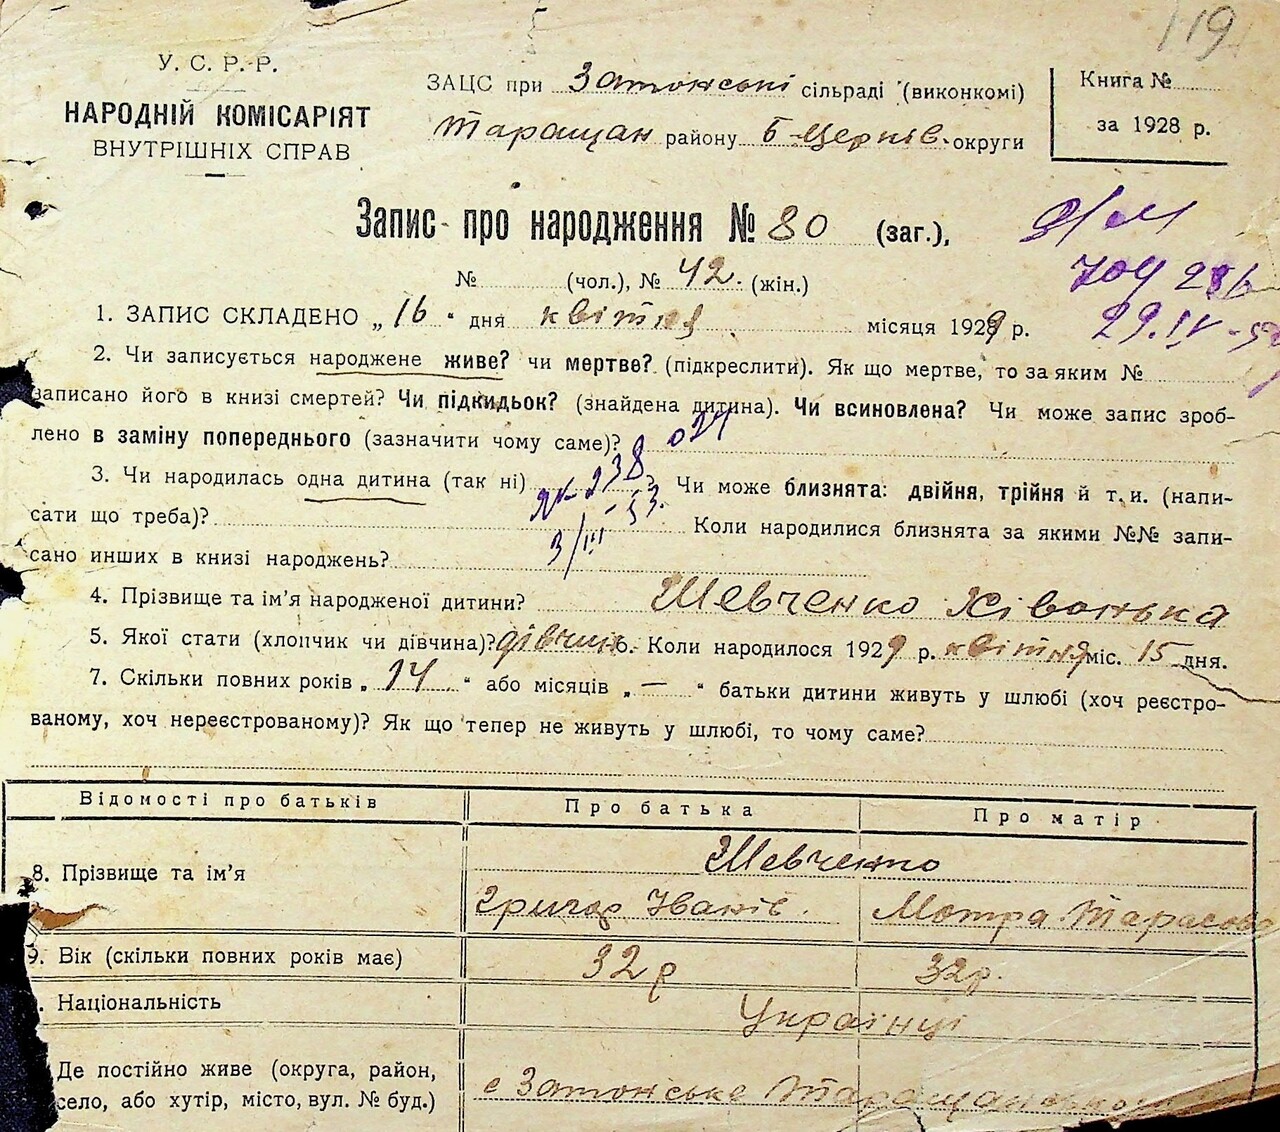 119
У. С. Р. Р.
НАРОДНІЙ КОМІСАРІЯТ
ВНУТРІШНІХ СПРАВ
ЗАЦС при Затонські сільраді (виконкомі)
Таращан району Б-Церків. округи
Книга №
за 1928 р.
Запис про народження № 80 (заг.),
№ (чол.), № 42. (жін.)
29.IV-
1. ЗАПИС СКЛАДЕНО „16" дня квітня місяця 1929 р.
2. Чи записується народжене живе? чи мертве? (підкреслити). Як що мертве, то за яким №
записано його в книзі смертей? Чи підкидьок? (знайдена дитина). Чи всиновлена? Чи може запис зроб-
лено в заміну попереднього (зазначити чому саме)?
3. Чи народилась одна дитина (так ні) ? Чи може близнята: двійня, трійня й т. и. (напи-
сати що треба)? Коли народилися близнята за якими №№ запи-
сано инших в книзі народжень?
4. Прізвище та ім'я народженої дитини? Шевченко Хівонька
5. Якої стати (хлопчик чи дівчина)? дівчина 6. Коли народилося 1929 р. квітня міс. 15 дня.
7. Скільки повних років „14" або місяців „—" батьки дитини живуть у шлюбі (хоч реєстро-
ваному, хоч нереєстрованому)? Як що тепер не живуть у шлюбі, то чому саме?
Відомості про батьків Про батька Про матір
8. Прізвище та ім'я Шевченко
Григор Іванів. Мотра Тарасова
9. Вік (скільки повних років має) 32 р 32 р.
. Національність Українці
Де постійно живе (округа, район,
село, або хутір, місто, вул. № буд.) с Затонське Таращанського